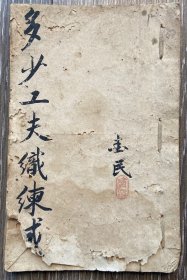 多少工夫織練成
民